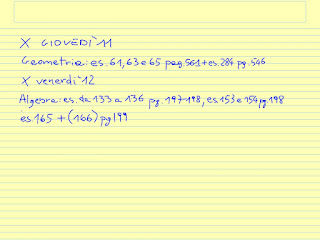 X GIOVEDÌ 11
Geometria: es. 61, 63 e 65 pag. 561 + es. 284 pg. 546
X venerdì 12
Algebra: es. da 133 a 136 pg. 197-198, es 153 e 154 pg. 198
es 165 + (166) pg 199